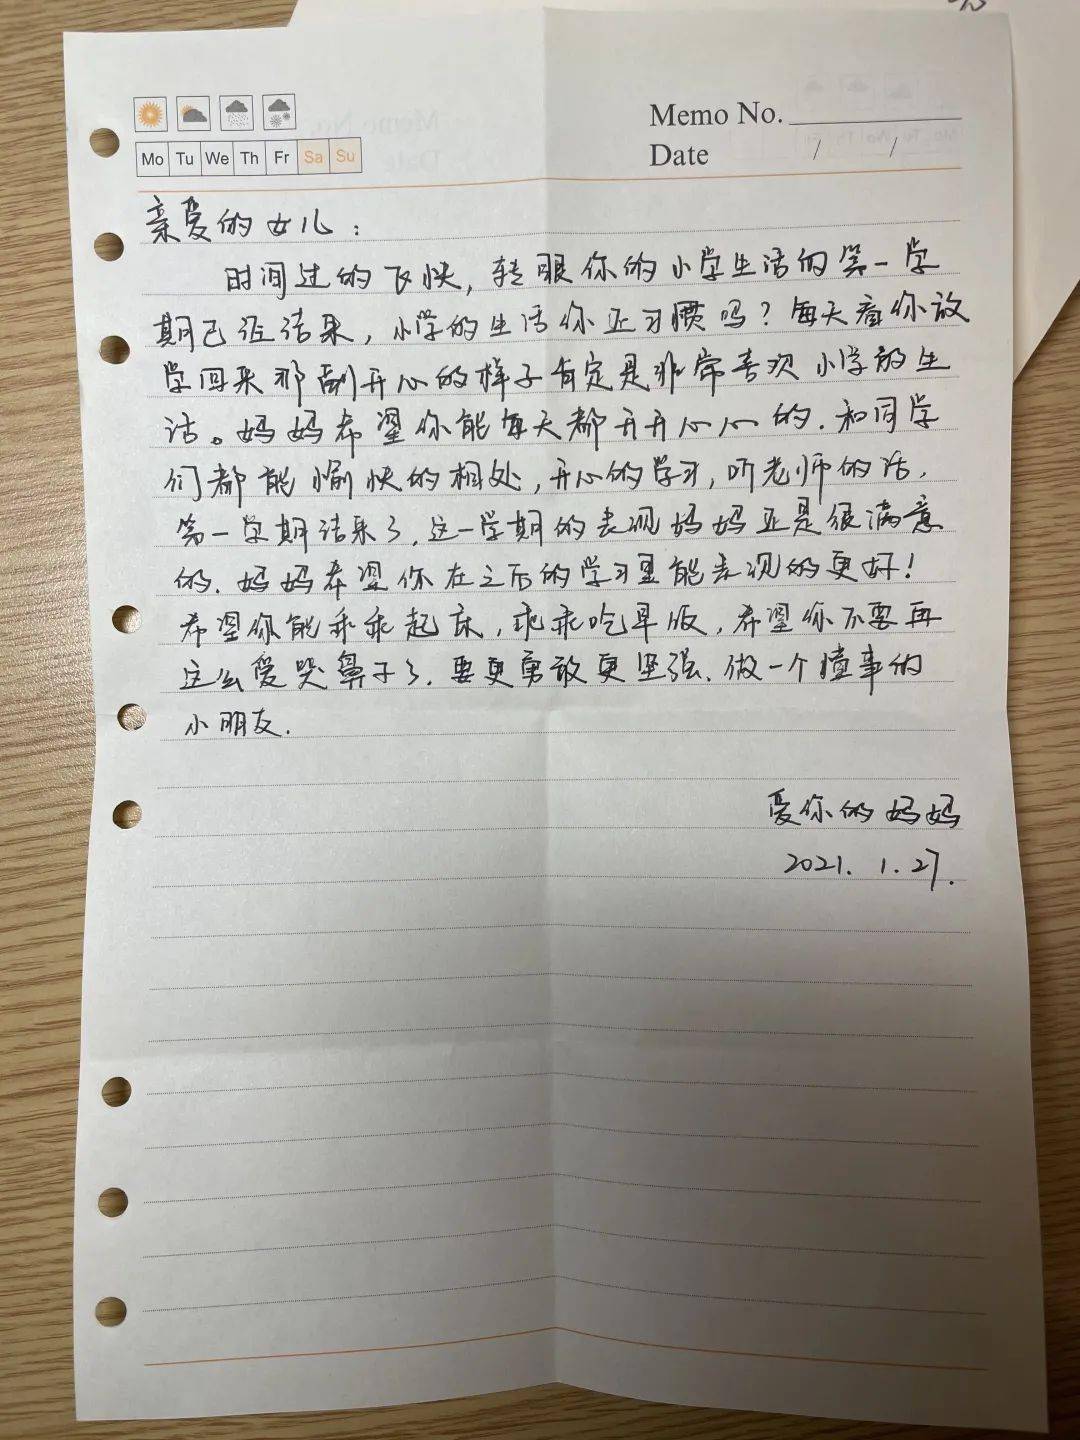 Memo No.
Mo Tu We Th Fr Sa Su
Date / /
亲爱的女儿:
时间过的飞快,转眼你的小学生活的第一学
期已经结束,小学的生活你还习惯吗?每天看你放
学回来那副开心的样子肯定是非常喜欢小学的生
活。妈妈希望你能每天都开开心心的.和同学
们都能愉快的相处,开心的学习,听老师的话.
第一学期结束了.这一学期的表现妈妈还是很满意
的.妈妈希望你在之后的学习里能表现的更好!
希望你能乖乖起床,乖乖吃早饭,希望你不要再
这么爱哭鼻子了.要更勇敢更坚强.做一个懂事的
小朋友.
爱你的妈妈
2021. 1. 27.